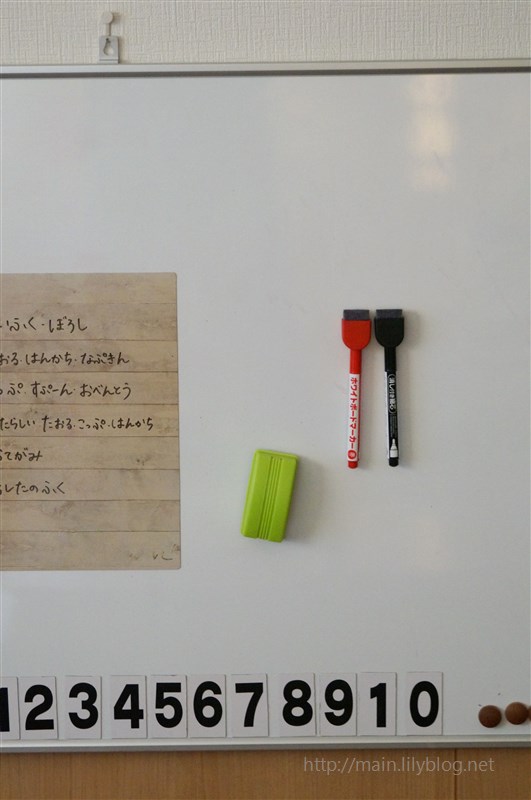 ふく・ぼうし
おる・はんかち・なぷきん
っぷ・すぷーん・おべんとう
たらしい たおる・こっぷ・はんかち
てがみ
したのふく
ホワイトボードマーカー 赤
1 2 3 4 5 6 7 8 9 1 0
http://main.lilyblog.net